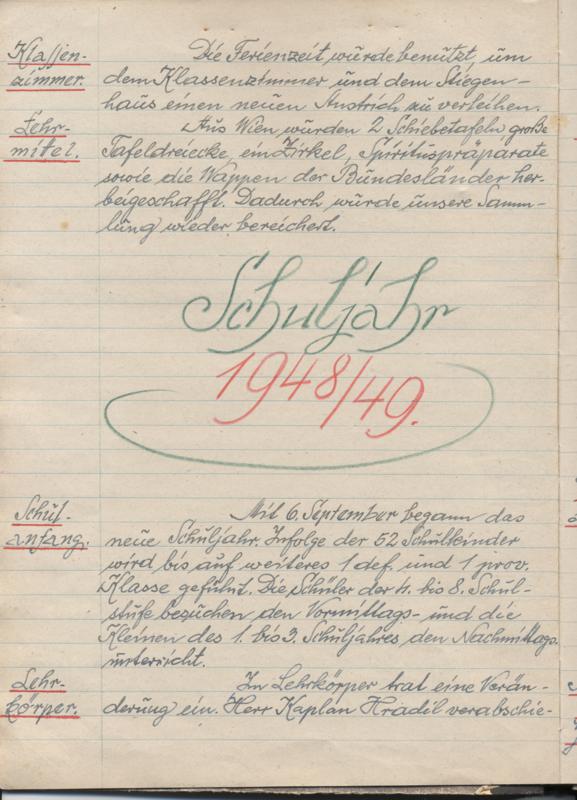 Klassen-
zimmer.
Die Ferienzeit wurde benützt, um
dem Klassenzimmer und dem Stiegen-
haus einen neuen Anstrich zu verleihen.
Lehr-
mittel.
Aus Wien wurden 2 Schiebetafeln große
Tafeldreiecke, ein Zirkel, Spirituspräparate
sowie die Wappen der Bundesländer her-
beigeschafft. Dadurch wurde unsere Samm-
lung wieder bereichert.
Schuljahr
1948/49.
Schul-
anfang.
Mit 6. September begann das
neue Schuljahr. Infolge der 52 Schulkinder
wird bis auf weiteres 1 def. und 1 prov.
Klasse geführt. Die Schüler der 4. bis 8. Schul-
stufe besuchen den Vormittags- und die
Kleinen des 1. bis 3. Schuljahres den Nachmittags-
unterricht.
Lehr-
körper.
Im Lehrkörper trat eine Verän-
derung ein. Herr Kaplan Hradil verabschie-